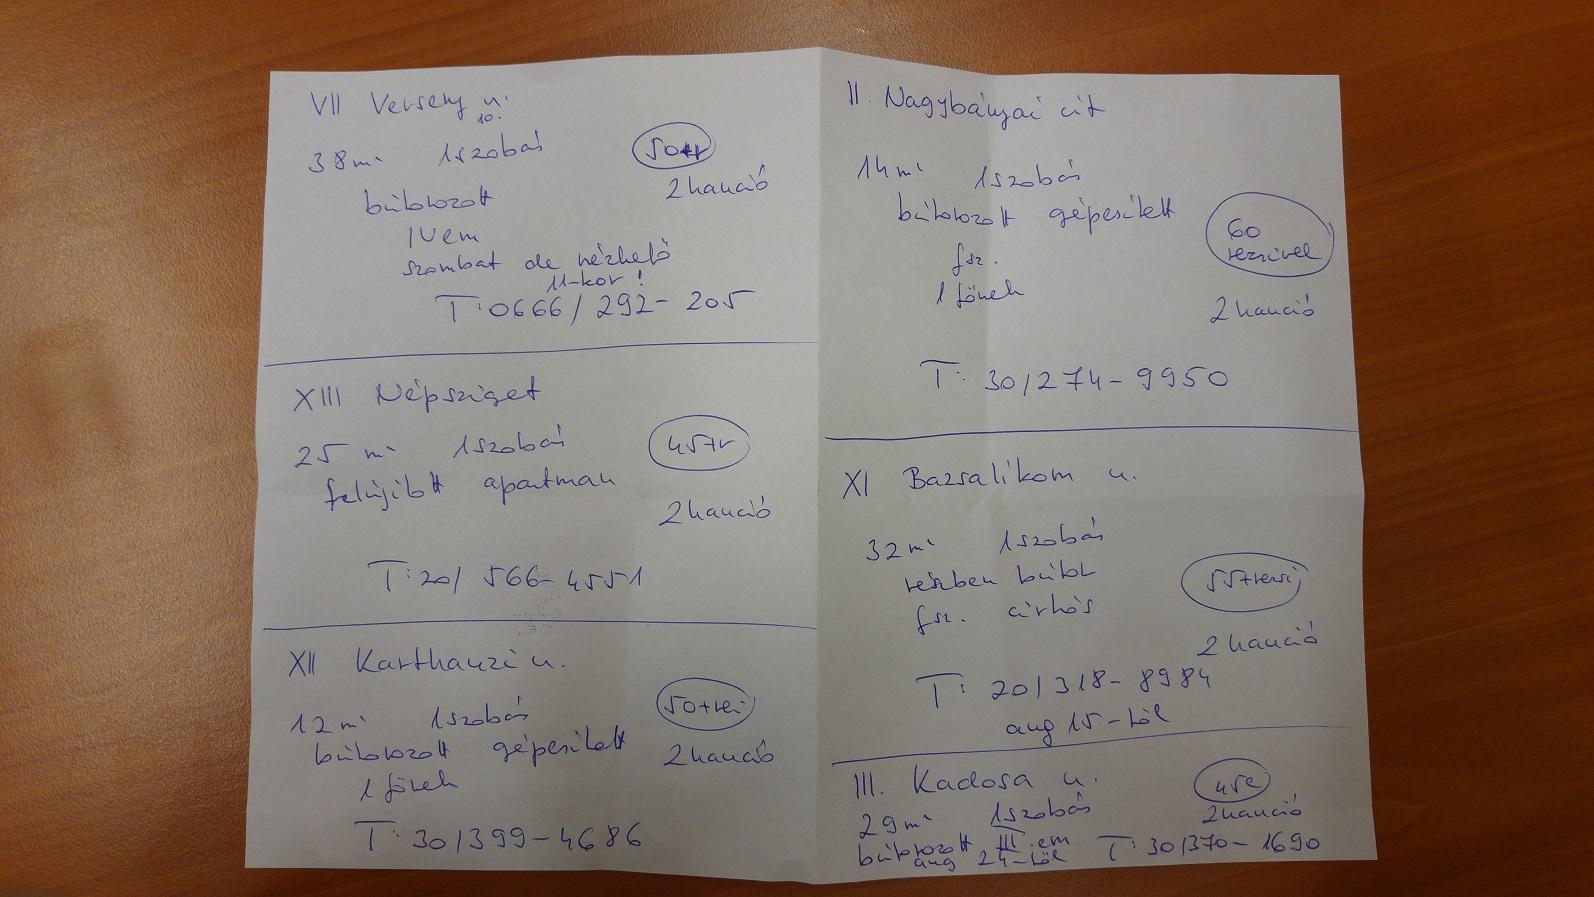 VII Verseny u.
10.
38m² 1szobás 50+r
2 kaució
bútorozott
IV em
szombat de nézhető
11-kor!
T: 0666/292-205
XIII Népsziget
25 m² 1szobás 45+r
felújított apartman
2 kaució
T: 20/566-4551
XII Karthauzi u.
12 m² 1szobás 50+rezsi
bútorozott gépesített 2 kaució
1 főnek
T: 30/399-4686
II. Nagybányai út
14m² 1szobás
bútorozott gépesített 60
rezsivel
fsz.
1 főnek
2 kaució
T: 30/274-9950
XI Bazsalikom u.
32m² 1szobás
részben bútor 55+rezsi
fsz. cirkós
2 kaució
T: 20/318-8984
aug 15-től
III. Kadosa u. 45e
29m² 1szobás 2 kaució
bútorozott III. em T: 30/370-1690
aug 24-től